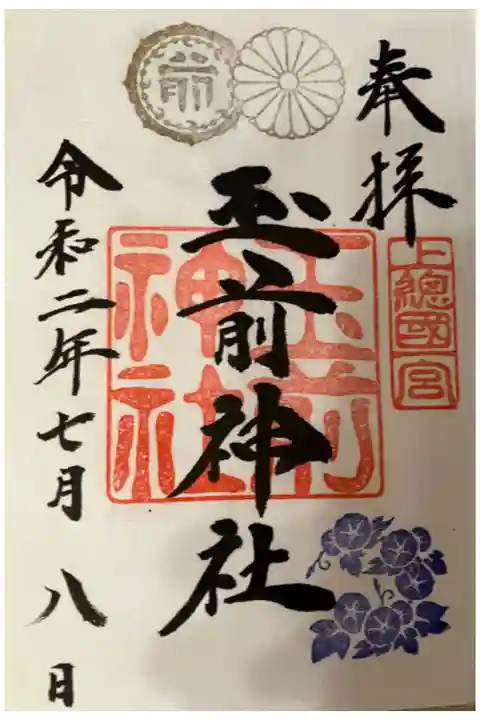 奉拝
上總國一宮
玉前神社
玉前神社
前
令和二年七月八日